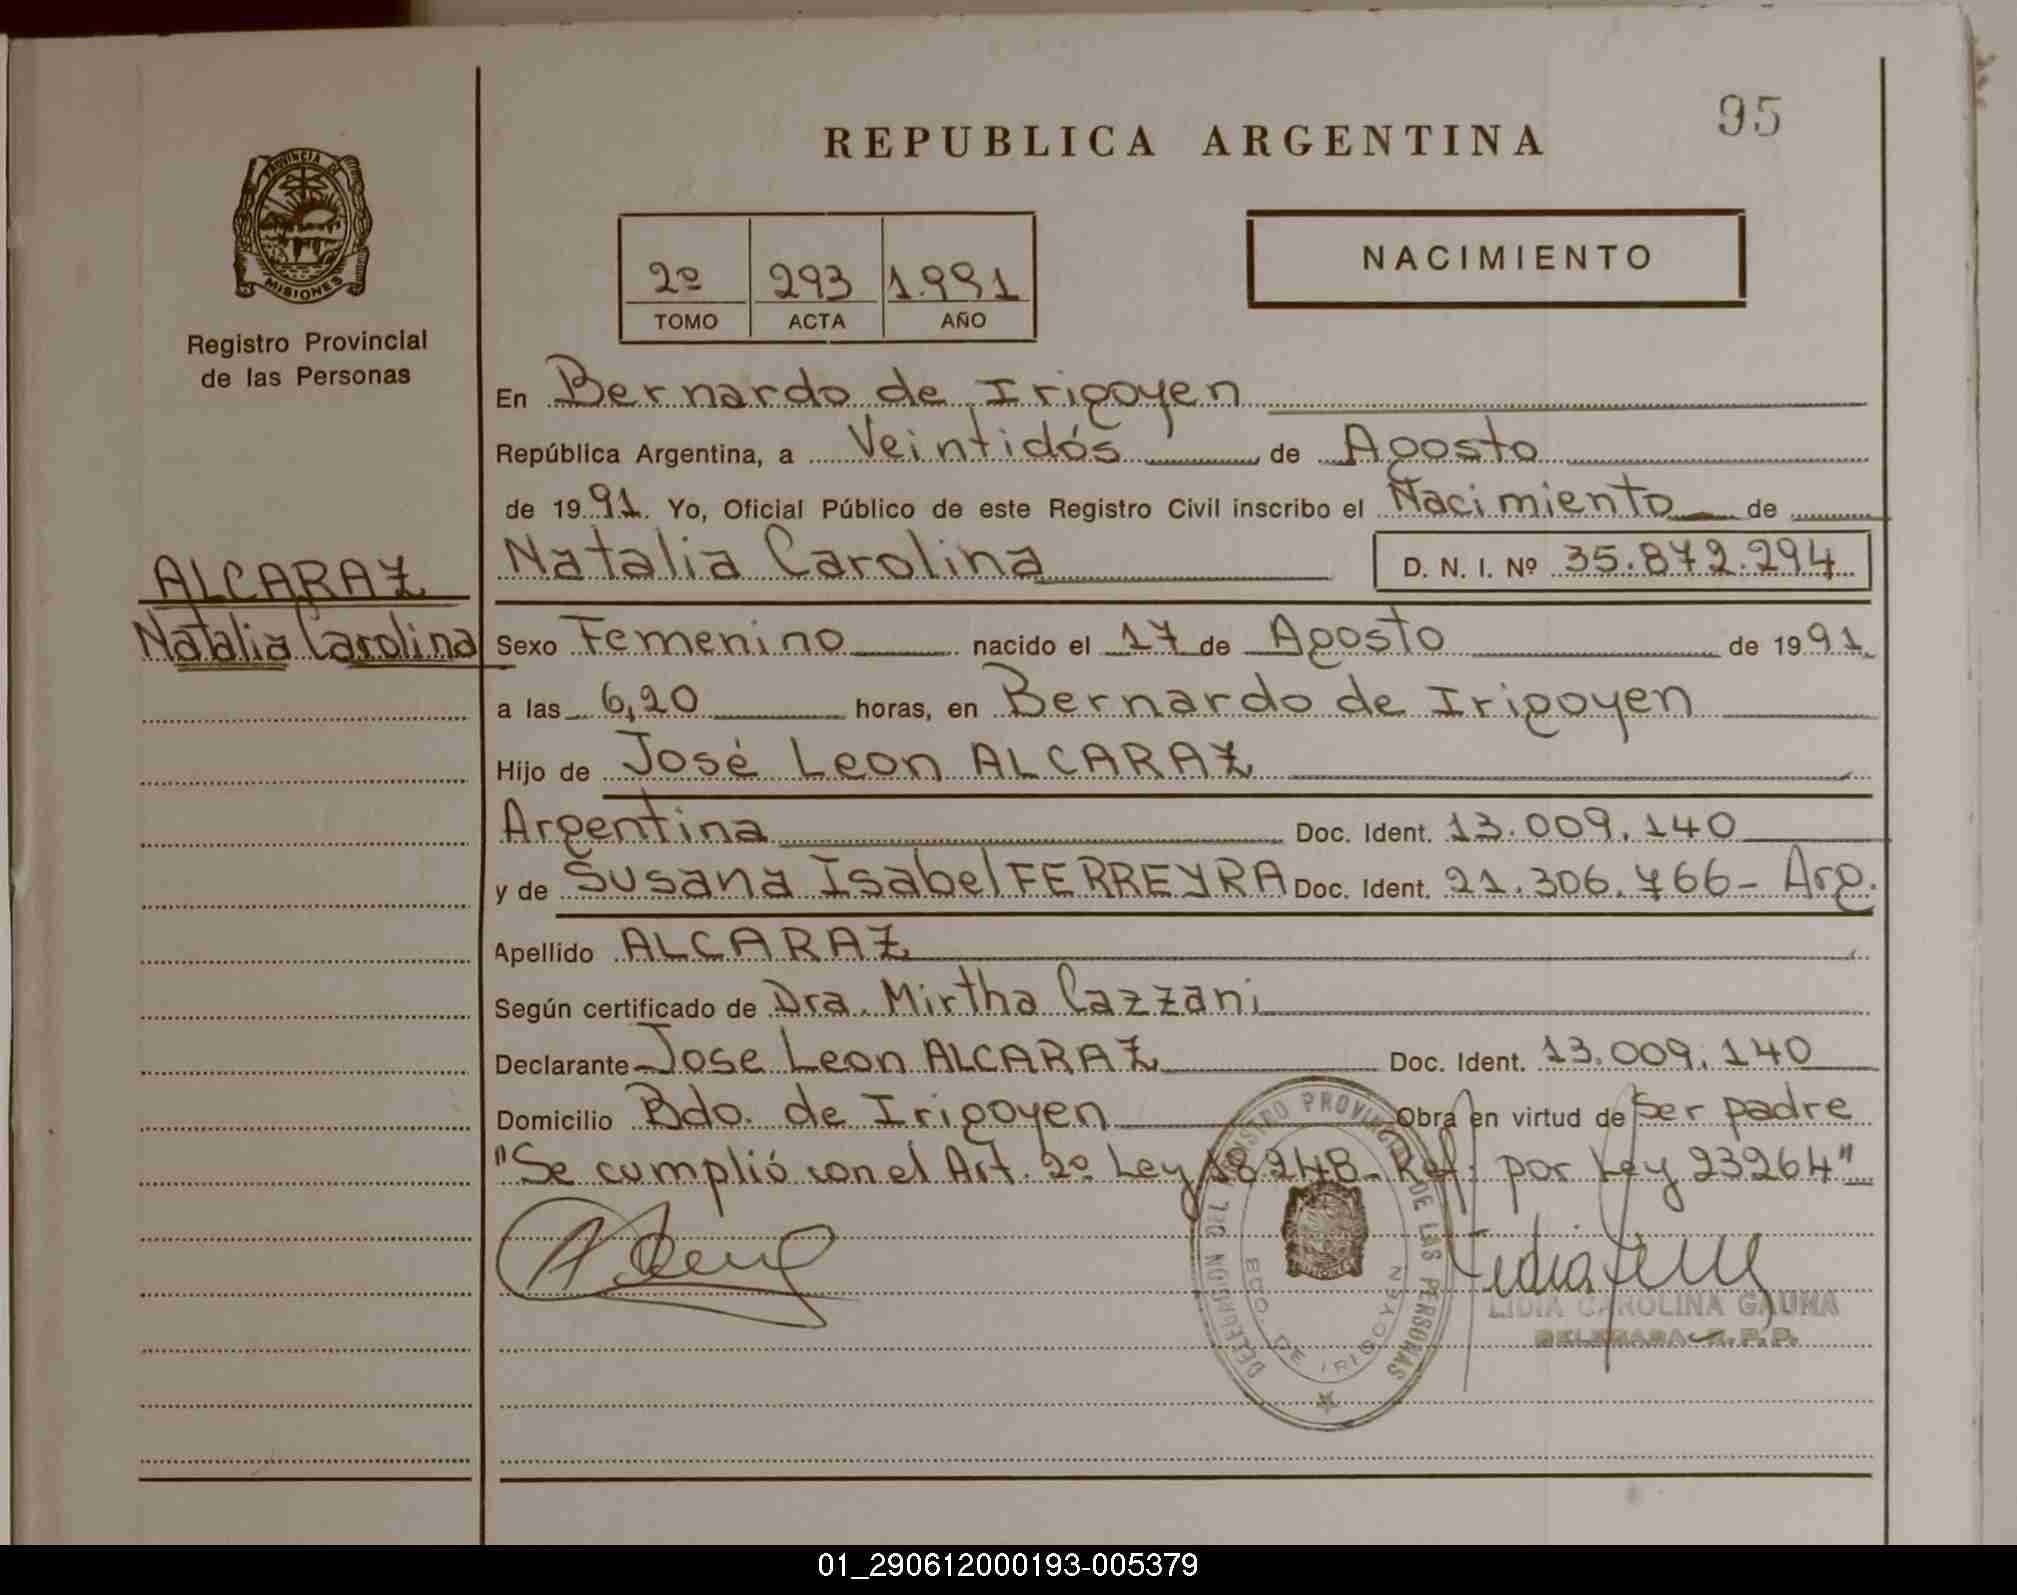 95
REPUBLICA ARGENTINA
PROVINCIA DE
MISIONES
Registro Provincial
de las Personas
NACIMIENTO
2º 293 1.991
TOMO ACTA AÑO
En Bernardo de Irigoyen
República Argentina, a Veintidós de Agosto
de 1991. Yo, Oficial Público de este Registro Civil inscribo el Nacimiento de
ALCARAZ
Natalia Carolina
Natalia Carolina D. N. I. Nº 35.872.294
Sexo Femenino nacido el 17 de Agosto de 1991
a las 6,20 horas, en Bernardo de Irigoyen
Hijo de José Leon ALCARAZ
Argentina Doc. Ident. 13.009.140
y de Susana Isabel FERREYRA Doc. Ident. 21.306.766- Arg.
Apellido ALCARAZ
Según certificado de Dra. Mirtha Cazzani
Declarante Jose Leon ALCARAZ Doc. Ident. 13.009.140
Domicilio Bdo. de Irigoyen Obra en virtud de Ser padre
"Se cumplió con el Art. 2º Ley 18248- Ref. por Ley 23264"
REGISTRO PROVINCIAL DE LAS PERSONAS
DELEGACION DEL
BDO. DE IRIGOYEN
LIDIA CAROLINA GAUNA
DELEGADA R.P.P.
01_290612000193-005379